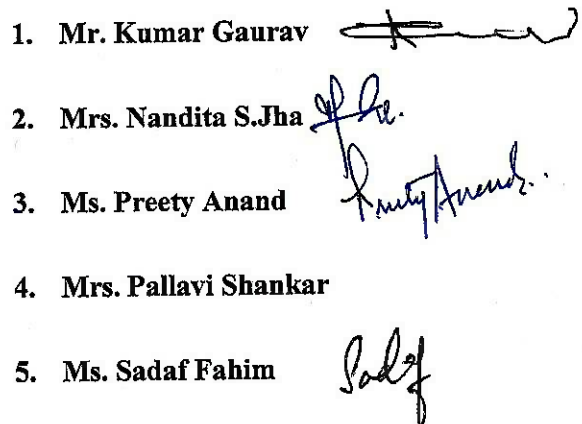 1. Mr. Kumar Gaurav
2. Mrs. Nandita S.Jha
3. Ms. Preety Anand Preety Anand
4. Mrs. Pallavi Shankar
5. Ms. Sadaf Fahim Sadaf